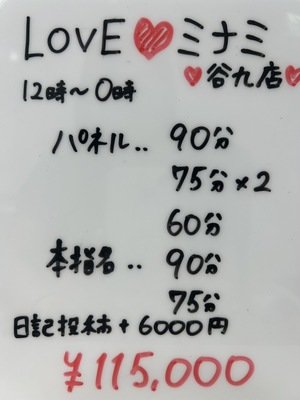 LOVE♥ミナミ
♥谷九店♥
12時～0時
パネル‥ 90分
75分×2
60分
本指名‥ 90分
75分
日記投稿+6000円
¥115,000